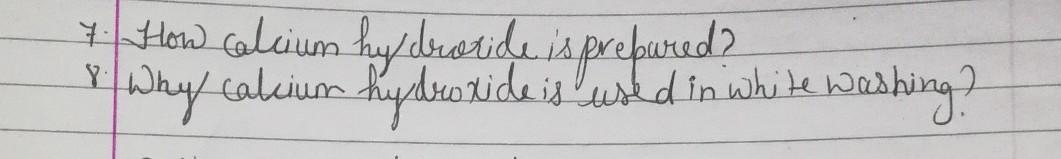 7. How calcium hydroxide is prepared?
8. Why calcium hydroxide is used in white washing?